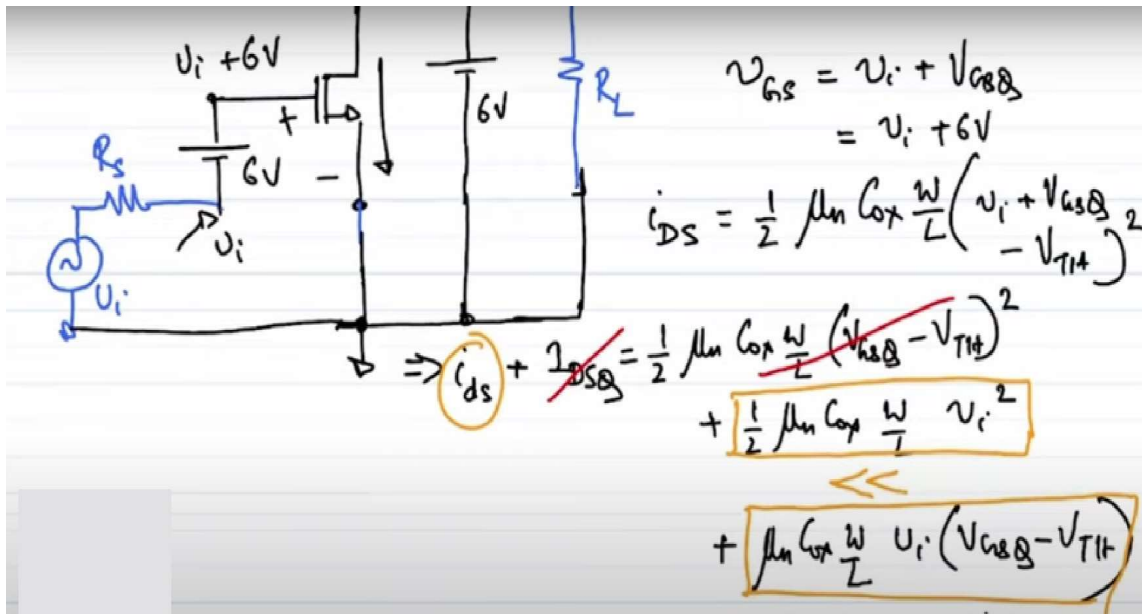 υi + 6V
+
6V
-
Rs
υi
υi
6V
RL
υGS = υi + VGSQ
= υi + 6V
iDS = 1/2 μn Cox W/L (υi + VGSQ - VTH)^2
⇒ ids + IDSQ = 1/2 μn Cox W/L (VGSQ - VTH)^2
+ 1/2 μn Cox W/L υi^2
<<
+ μn Cox W/L υi (VGSQ - VTH)